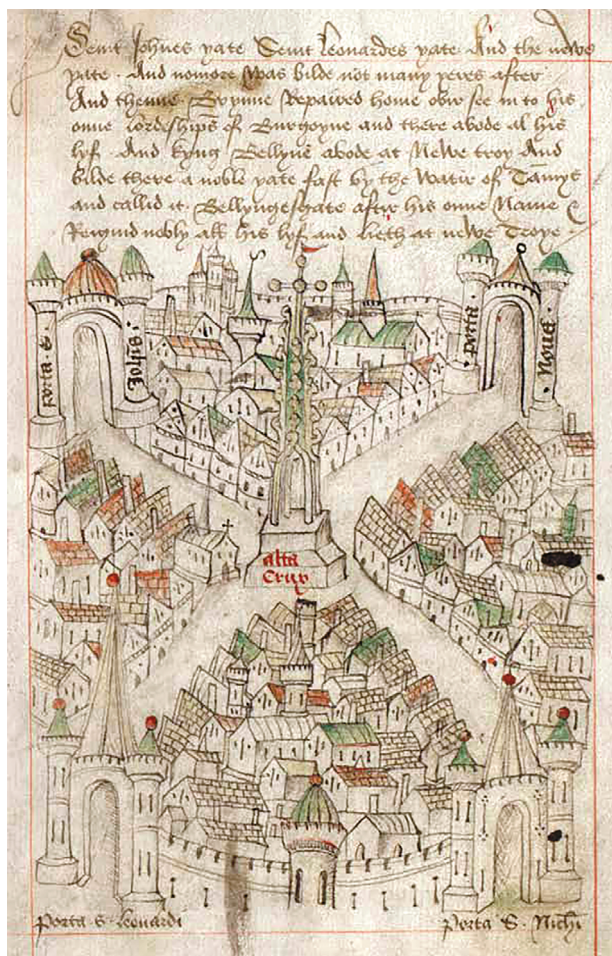 Seint Johnes yate Seint Leonardes yate And the newe
yate · And nomore was bilde not many yeres after
And thenne Brynne Repaired home ovir see in to his
owne Lordeships of Burgoyne and there abode al his
lyf And kyng Bellyne abode at Newe troy And
bilde there a noble yate fast by the watir of Tamys
and callid it Bellyngesgate after his owne Name &
Reigned nobly all his lyf and lieth at newe Troye ·
Porta S·
Joh̄is·
Porta·
Nova·
alta
Crux
Porta S· Leonardi
Porta S· Nichi